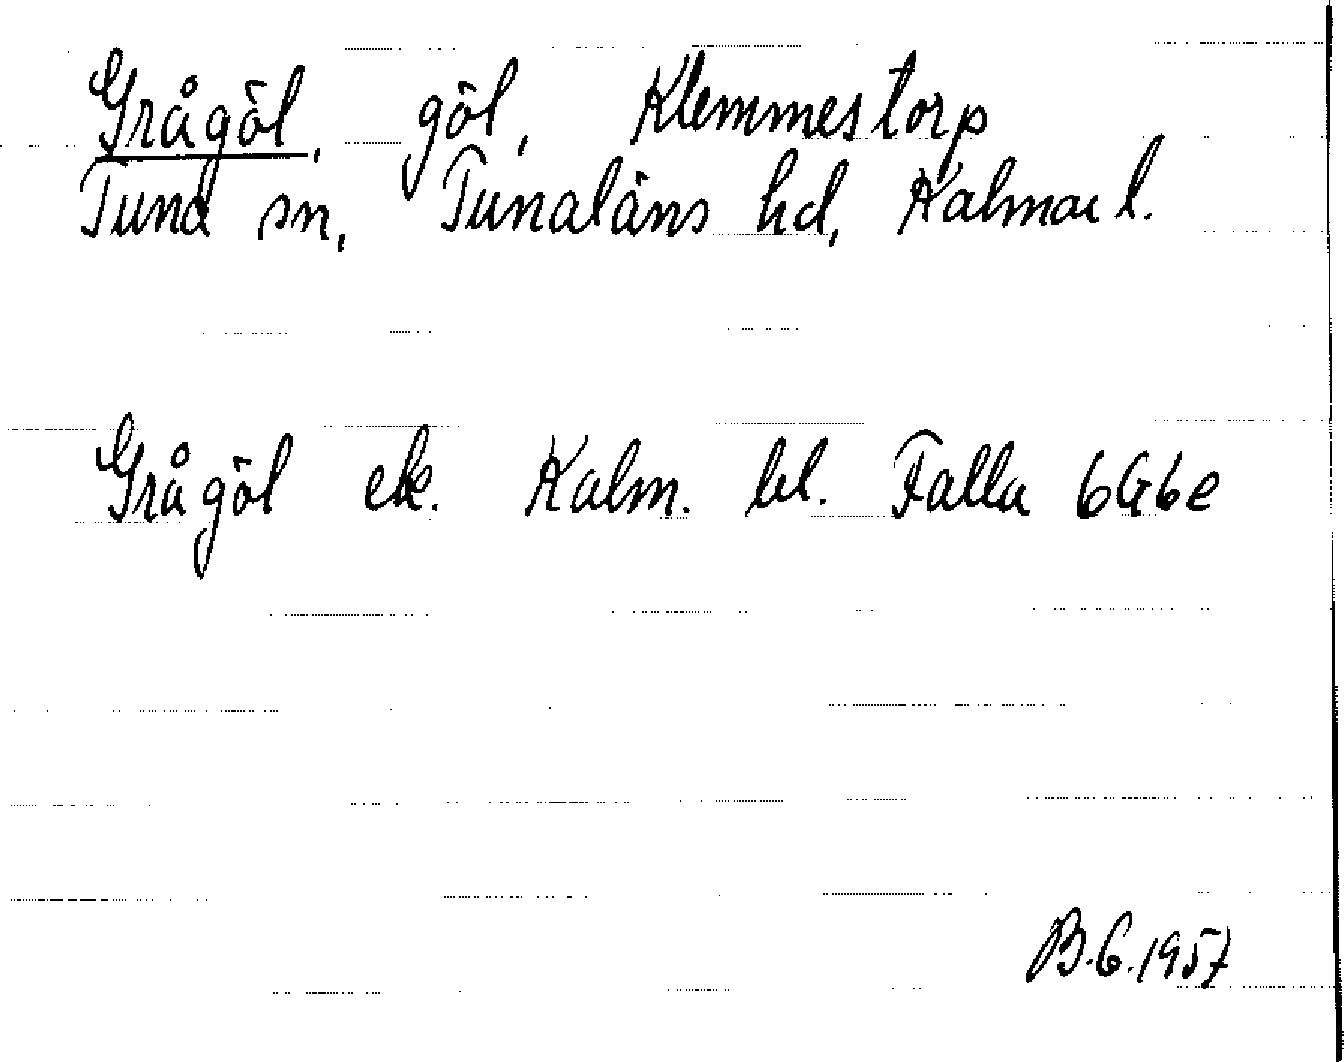 Grågöl, göl, Klemmestorp
Tuna sn, Tunaläns hd, Kalmar l.
Grågöl ek. Kalm. bl. Falla 6G6e
B.G.1957